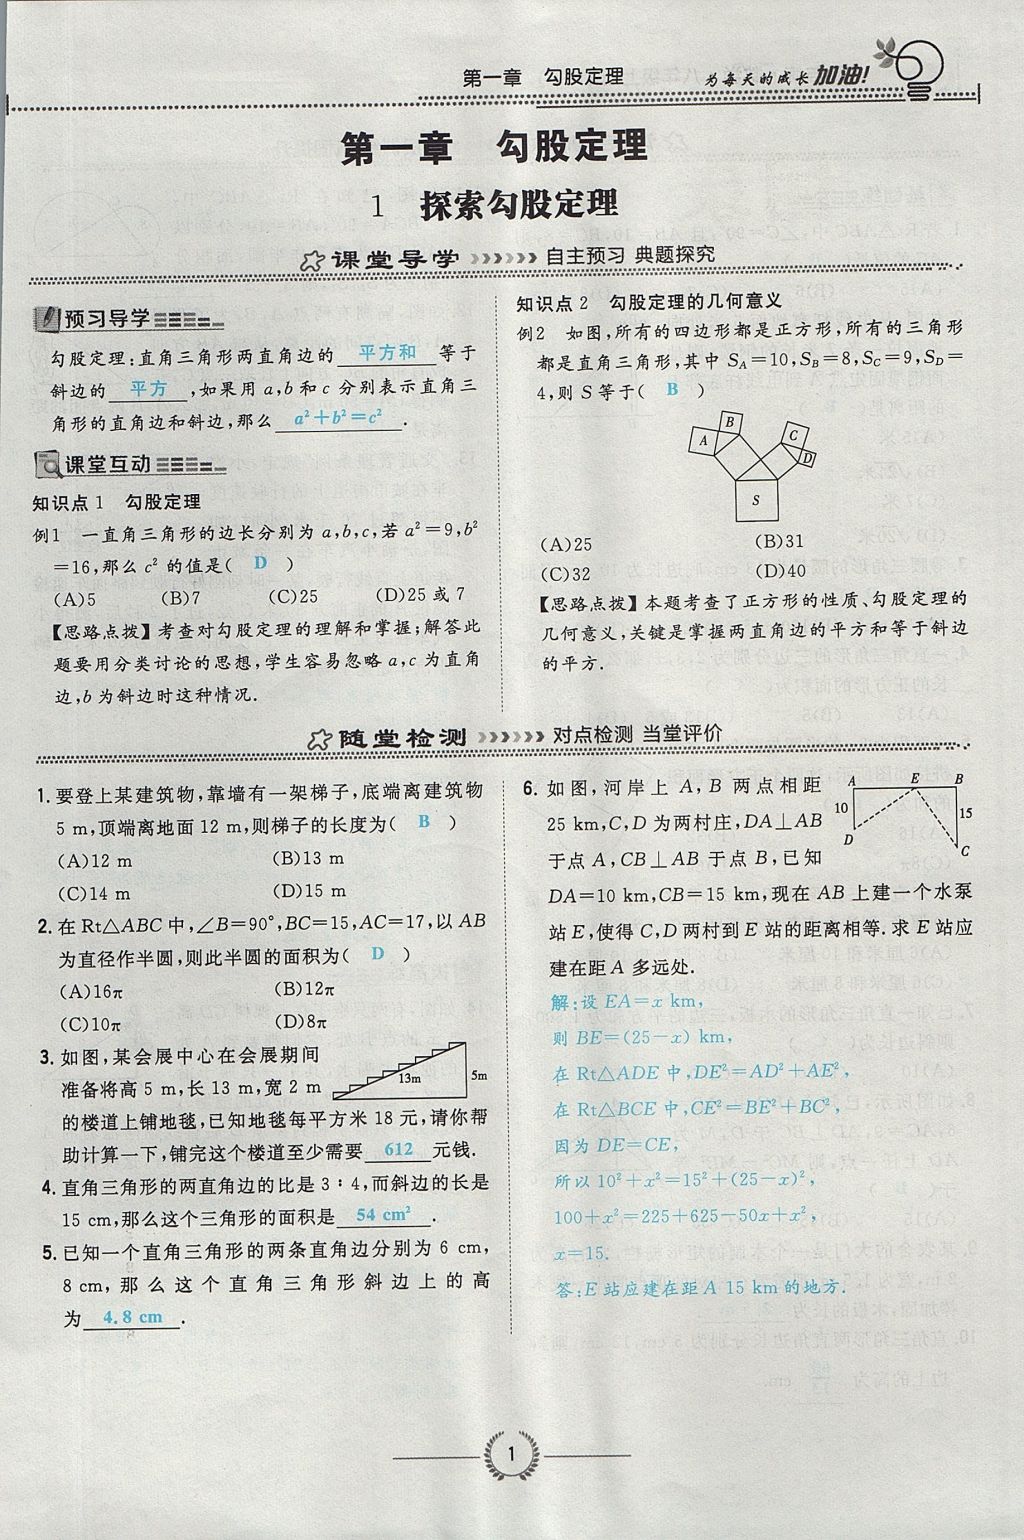 第一章 勾股定理
为每天的成长加油!
第一章 勾股定理
1 探索勾股定理
课堂导学 自主预习 典题探究
预习导学
勾股定理:直角三角形两直角边的 平方和 等于
斜边的 平方 ,如果用 a,b 和 c 分别表示直角三
角形的直角边和斜边,那么 a²+b²=c² .
课堂互动
知识点1 勾股定理
例1 一直角三角形的边长分别为 a,b,c,若 a²=9,b²
=16,那么 c² 的值是( D )
(A)5 (B)7 (C)25 (D)25 或 7
【思路点拨】考查对勾股定理的理解和掌握;解答此
题要用分类讨论的思想,学生容易忽略 a,c 为直角
边,b 为斜边时这种情况.
知识点2 勾股定理的几何意义
例2 如图,所有的四边形都是正方形,所有的三角形
都是直角三角形,其中 S_A=10,S_B=8,S_C=9,S_D=
4,则 S 等于( B )
A B C D S
(A)25 (B)31
(C)32 (D)40
【思路点拨】本题考查了正方形的性质、勾股定理的
几何意义,关键是掌握两直角边的平方和等于斜边
的平方.
随堂检测 对点检测 当堂评价
1.要登上某建筑物,靠墙有一架梯子,底端离建筑物
5 m,顶端离地面 12 m,则梯子的长度为( B )
(A)12 m (B)13 m
(C)14 m (D)15 m
2.在 Rt△ABC 中,∠B=90°,BC=15,AC=17,以 AB
为直径作半圆,则此半圆的面积为( D )
(A)16π (B)12π
(C)10π (D)8π
3.如图,某会展中心在会展期间
准备将高 5 m,长 13 m,宽 2 m
13m 5m
的楼道上铺地毯,已知地毯每平方米 18 元,请你帮
助计算一下,铺完这个楼道至少需要 612 元钱.
4.直角三角形的两直角边的比是 3∶4,而斜边的长是
15 cm,那么这个三角形的面积是 54 cm² .
5.已知一个直角三角形的两条直角边分别为 6 cm,
8 cm,那么这个直角三角形斜边上的高
为 4.8 cm .
6.如图,河岸上 A,B 两点相距
25 km,C,D 为两村庄,DA⊥AB
于点 A,CB⊥AB 于点 B,已知
A E B
10 15
D C
DA=10 km,CB=15 km,现在 AB 上建一个水泵
站 E,使得 C,D 两村到 E 站的距离相等.求 E 站应
建在距 A 多远处.
解:设 EA=x km,
则 BE=(25-x) km,
在 Rt△ADE 中,DE²=AD²+AE²,
在 Rt△BCE 中,CE²=BE²+BC²,
因为 DE=CE,
所以 10²+x²=15²+(25-x)²,
100+x²=225+625-50x+x²,
x=15.
答:E 站应建在距 A 15 km 的地方.
1